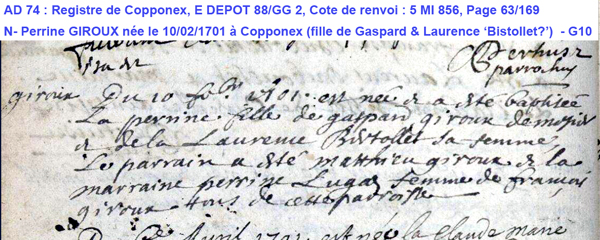 AD 74 : Registre de Copponex, E DEPOT 88/GG 2, Cote de renvoi : 5 MI 856, Page 63/169
N- Perrine GIROUX née le 10/02/1701 à Copponex (fille de Gaspard & Laurence ‘Bistollet?’) - G10
parrochus
giroux Du 10 febr 1701. est née & a été baptisée
La perrine fille de gaspar giroux de
& de la Laurence Bistollet sa femme,
Le parrain a été matthieu giroux & la
marraine perrine Lugaz femme de françois
giroux tous de cette parroisse
Avril 1701 est née la Claude Marie